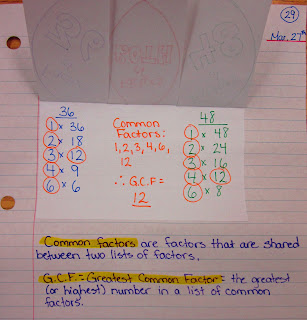 29
Mar. 27th
BOTH
36
1 x 36
2 x 18
3 x 12
4 x 9
6 x 6
Common
Factors:
1, 2, 3, 4, 6,
12
∴ G.C.F=
12
48
1 x 48
2 x 24
3 x 16
4 x 12
6 x 8
Common factors are factors that are shared
between two lists of factors.
G.C.F = Greatest Common Factor = the greatest
(or highest) number in a list of common
factors.